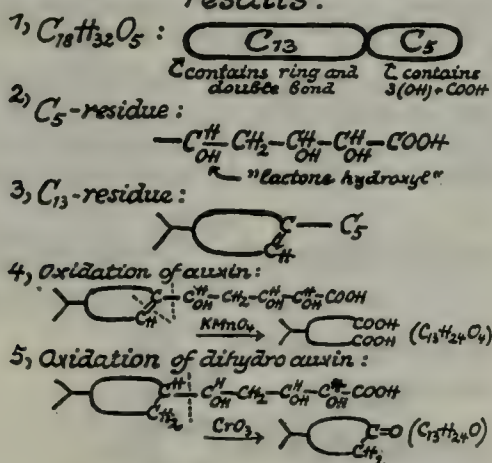 results:
1) C₁₈H₃₂O₅ : C₁₃ C₅
contains ring and double bond
contains 3(OH)+COOH
2) C₅-residue:
—CH(OH)—CH₂—CH(OH)—CH(OH)—COOH
"lactone hydroxyl"
3) C₁₃-residue:
C — C₅
CH
4) Oxidation of auxin:
C—CH(OH)—CH₂—CH(OH)—CH(OH)—COOH
CH
KMnO₄ → COOH COOH (C₁₃H₂₄O₄)
5) Oxidation of dihydro auxin:
CH—CH(OH)—CH₂—CH(OH)—CH(OH)—COOH
CH₂
CrO₃ → C=O (C₁₃H₂₄O)
CH₂